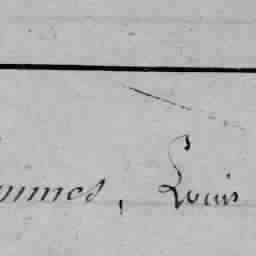 ommes, Louis